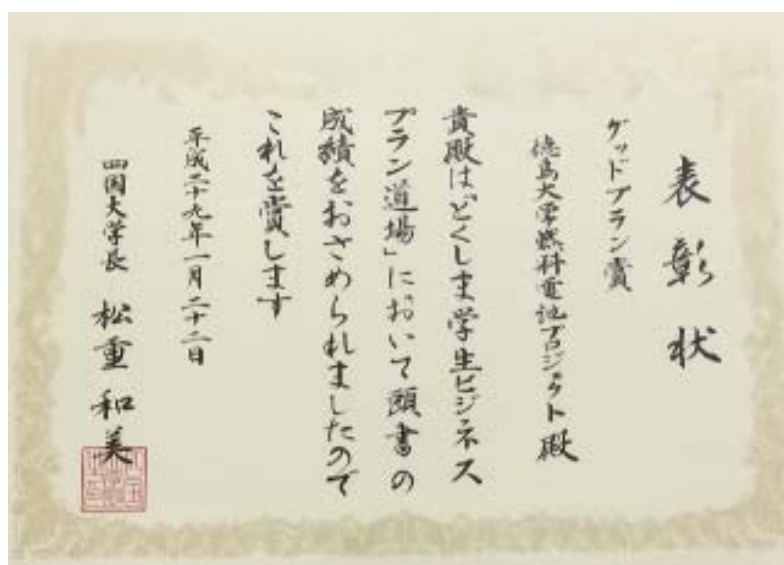 表彰状
グッドプラン賞
徳島大学燃料電池プロジェクト殿
貴殿は「とくしま学生ビジネス
プラン道場」において頭書の
成績をおさめられましたので
これを賞します
平成二十九年一月二十二日
四国大学長 松重和美